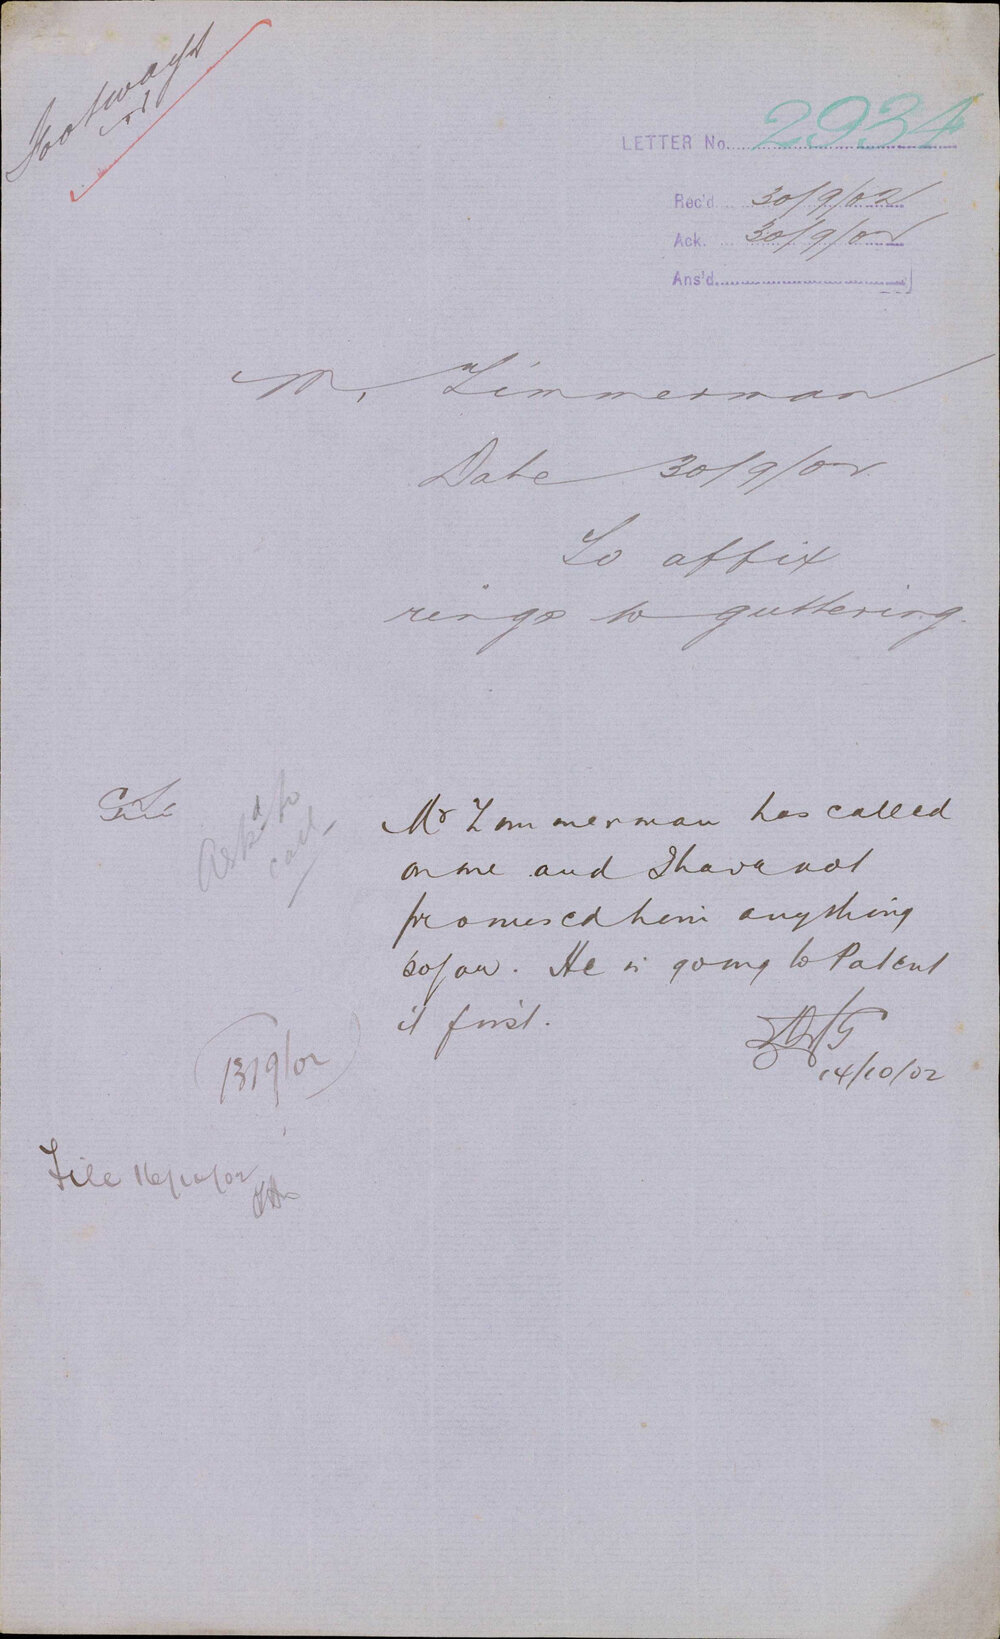 Footways
LETTER No. 2934
Rec'd. 30/9/02
Ack. 30/9/02
Ans'd.
M, Zimmerman
Date 30/9/02
To affix
rings to guttering.
Askd to
call
Mr Zimmerman has called
on me and I have not
promised him anything
so far. He is going to Patent
it first.
14/10/02
File 16/10/02